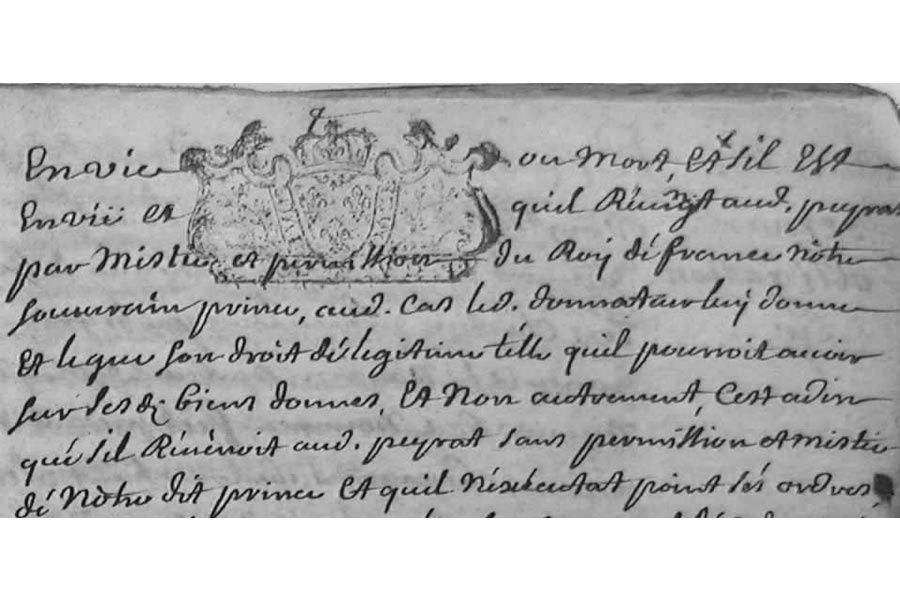 En vie ou mort, Et sil Est
En vië et quil Révint aud. peyrat
par mistere et permission du Roy dé france notre
souverain prince, aud. Cas led. donnataur luy donne
Et legue son droit dé legitime télle quil pourroit avoir
sur ses d. biens donnes, Et Non autrement, Cest adire
qué sil Révenoit aud. peyrat sans permission et mistere
dé Notre dit prince Et quil Néxécutat point sés ordres,